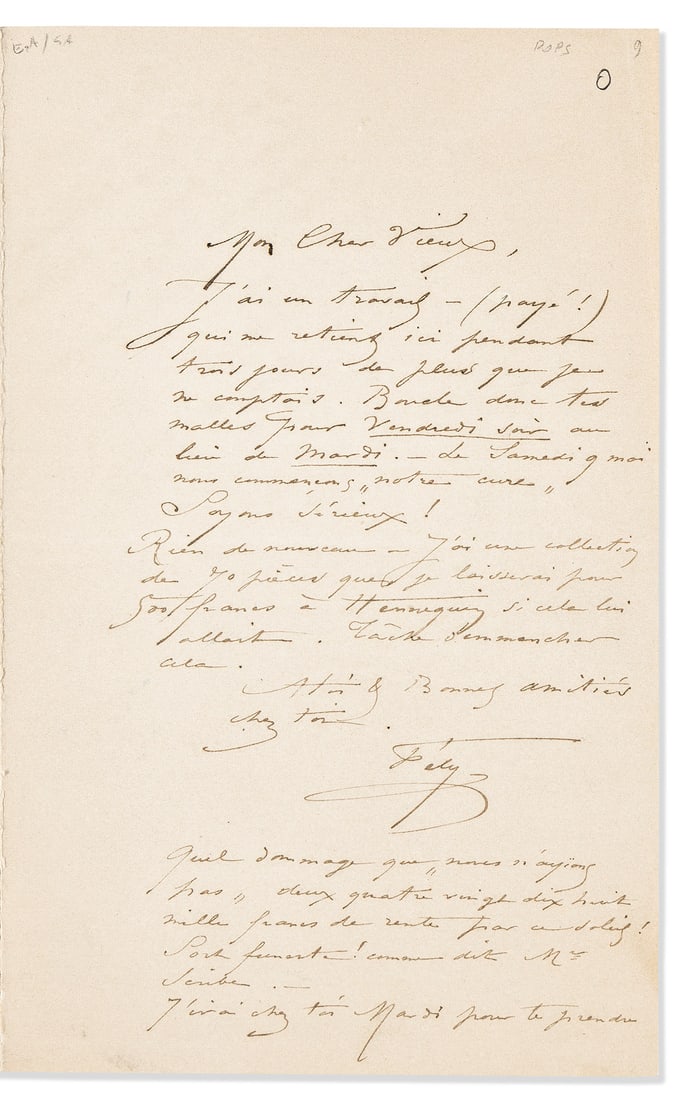 ROPS
9
O
Mon Cher Vieux,
J'ai un travail – (payé !)
qui me retient ici pendant
trois jours de plus que je
ne comptais. Boucle donc tes
malles pour Vendredi soir au
lieu de Mardi. – Le Samedi moi
nous commençons „notre cure„
Soyons Sérieux !
Rien de nouveau – J'ai une collection
de 70 pièces que je laisserai pour
500 francs à Hennequin si cela lui
allait. Tâche d'emmancher
cela.
A toi & Bonnes amitiés
chez toi.
Fély
Quel dommage que „nous n'ayions
pas„ deux quatre vingt dix huit
mille francs de rente par ce soleil !
Sort funeste ! comme dit Mr
Scribe. –
J'irai chez toi Mardi pour te prendre